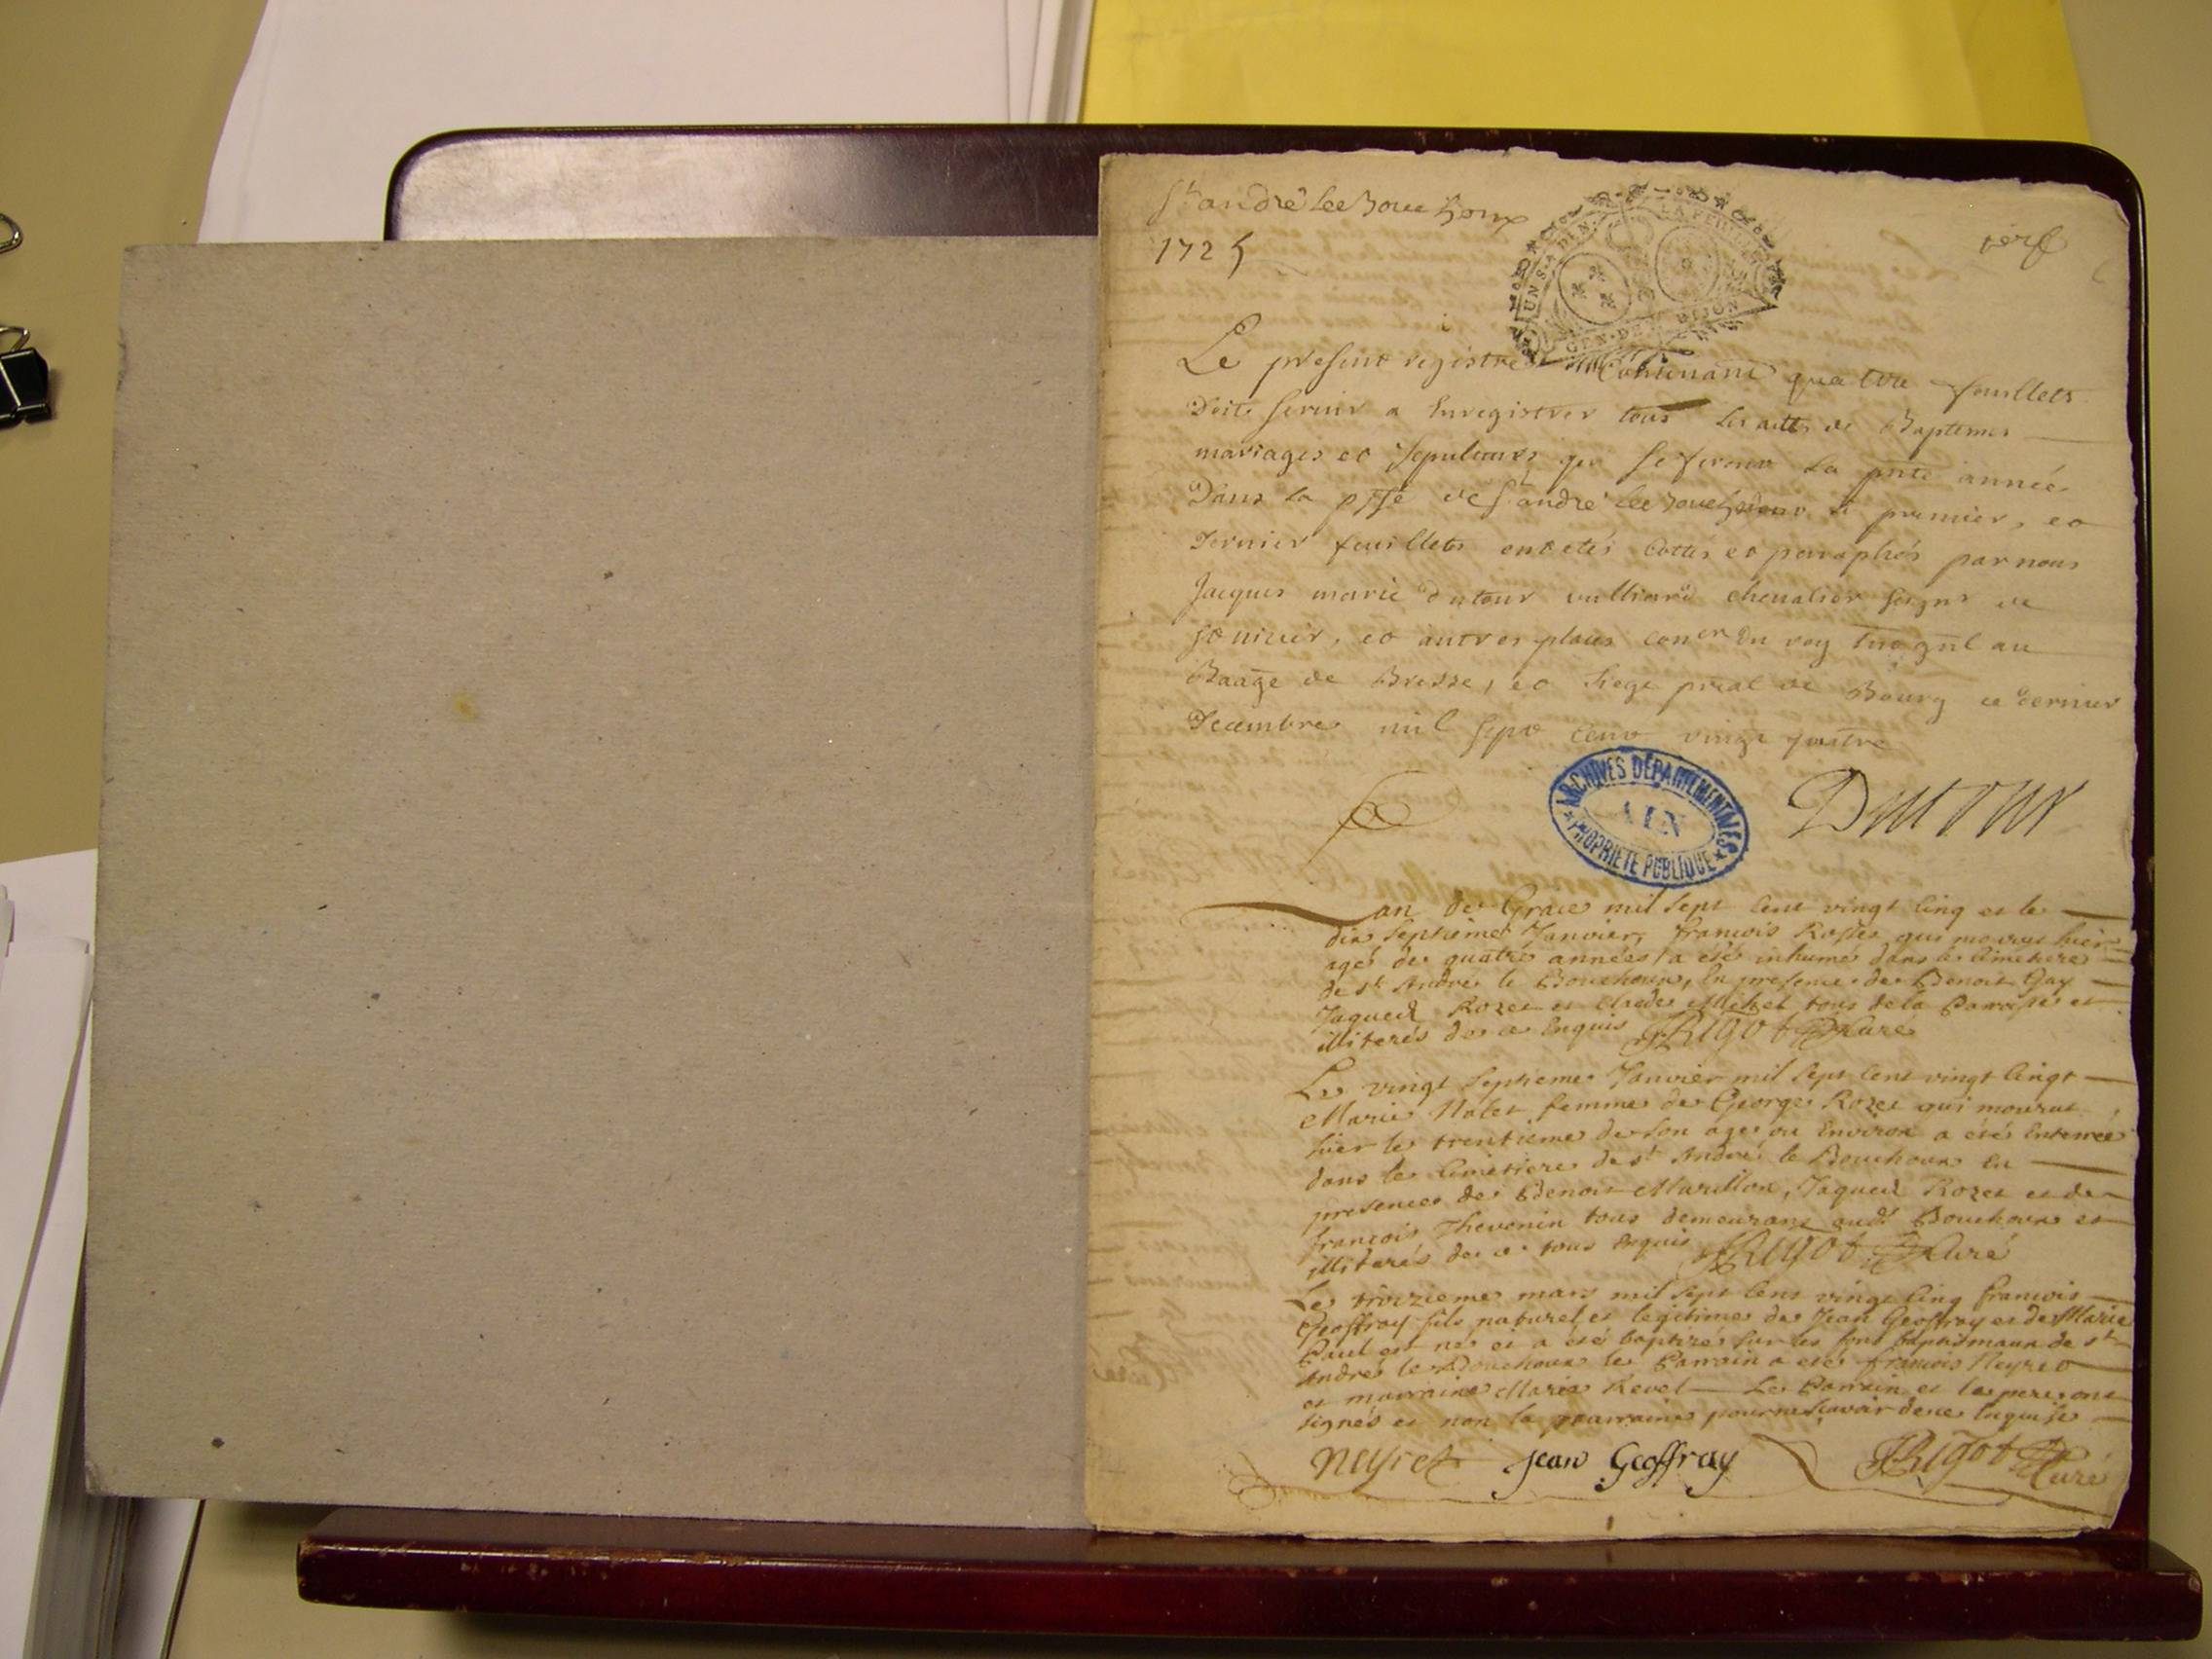 St andré lee Bouchoux
1725
UN S. 4 DEN. LA FEUILLE
GEN. DE DIJON
Le present registre Contenant quatre feuillets
Doit servir a Enregistrer tous les actes de Baptemes
mariages et sepultures qui se feront La pnte année
Dans la psse de St andré lee bouchoux le premier, et
Dernier feuillets entetés Cottés et paraphés par nous
Jacques marie dutour vulliard chevalier seignr de
St nizier, et autres places coner du roy lnt gnl au
Baage de Bresse, et siege pnal de Bourg ce dernier
Decembre mil sept cent vingt quatre
ARCHIVES DÉPARTEMENTALES
AIN
PROPRIETE PUBLIQUE
Dutour
Lan de Grace mil sept cent vingt cinq et le
dix septieme Janvier, francois Roset qui mourut hier
agé de quatre années a été inhumé dans le Cimetiere
de st André le Bouchoux, En presence de Benoit Gay
Jaques Rozet et Claude Michel tous de la Parroisse et
illiterés de ce Enquis JRigot Curé
Le vingt septieme Janvier mil sept cent vingt cinq
Marie Nalet femme de George Rozet qui mourut
hier le trentieme de son age ou Environ a étés Enterrée
dans le Cimetiere de st André le Bouchoux En
presence de Benoit Marillon, Jaques Rozet et de
francois Thevenin tous demeurans audt Bouchoux et
illiterés de ce tous Enquis JRigot Curé
Le troizieme mars mil sept cent vingt cinq francois
Geoffray fils naturel et legitime de Jean Geoffray et de Marie
Paul est né et a eté baptizé sur les fons baptismaux de st
André le Bouchoux le Parrain a eté francois Neyret
et marraine Marie Revel Le Parrain et le pere ont
signés et non la marraine pour ne scavoir de ce Enquise
neyret Jean Geoffray JRigot Curé